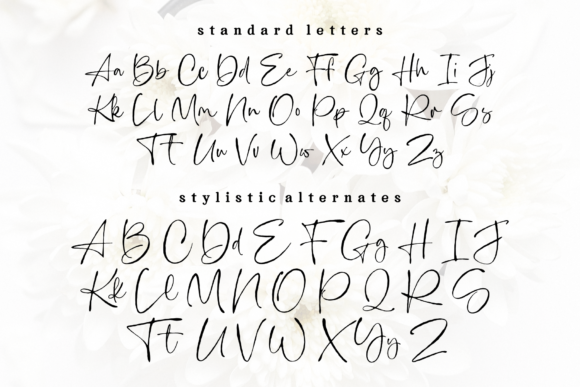 standard letters
Aa Bb Cc Dd Ee Ff Gg Hh Ii Jj
Kk Ll Mm Nn Oo Pp Qq Rr Ss
Tt Uu Vv Ww Xx Yy Zz
stylistic alternates
A B C Dd E F Gg H I J
Kk Ll M N O P Q R S
Tt U V W X Yy Z